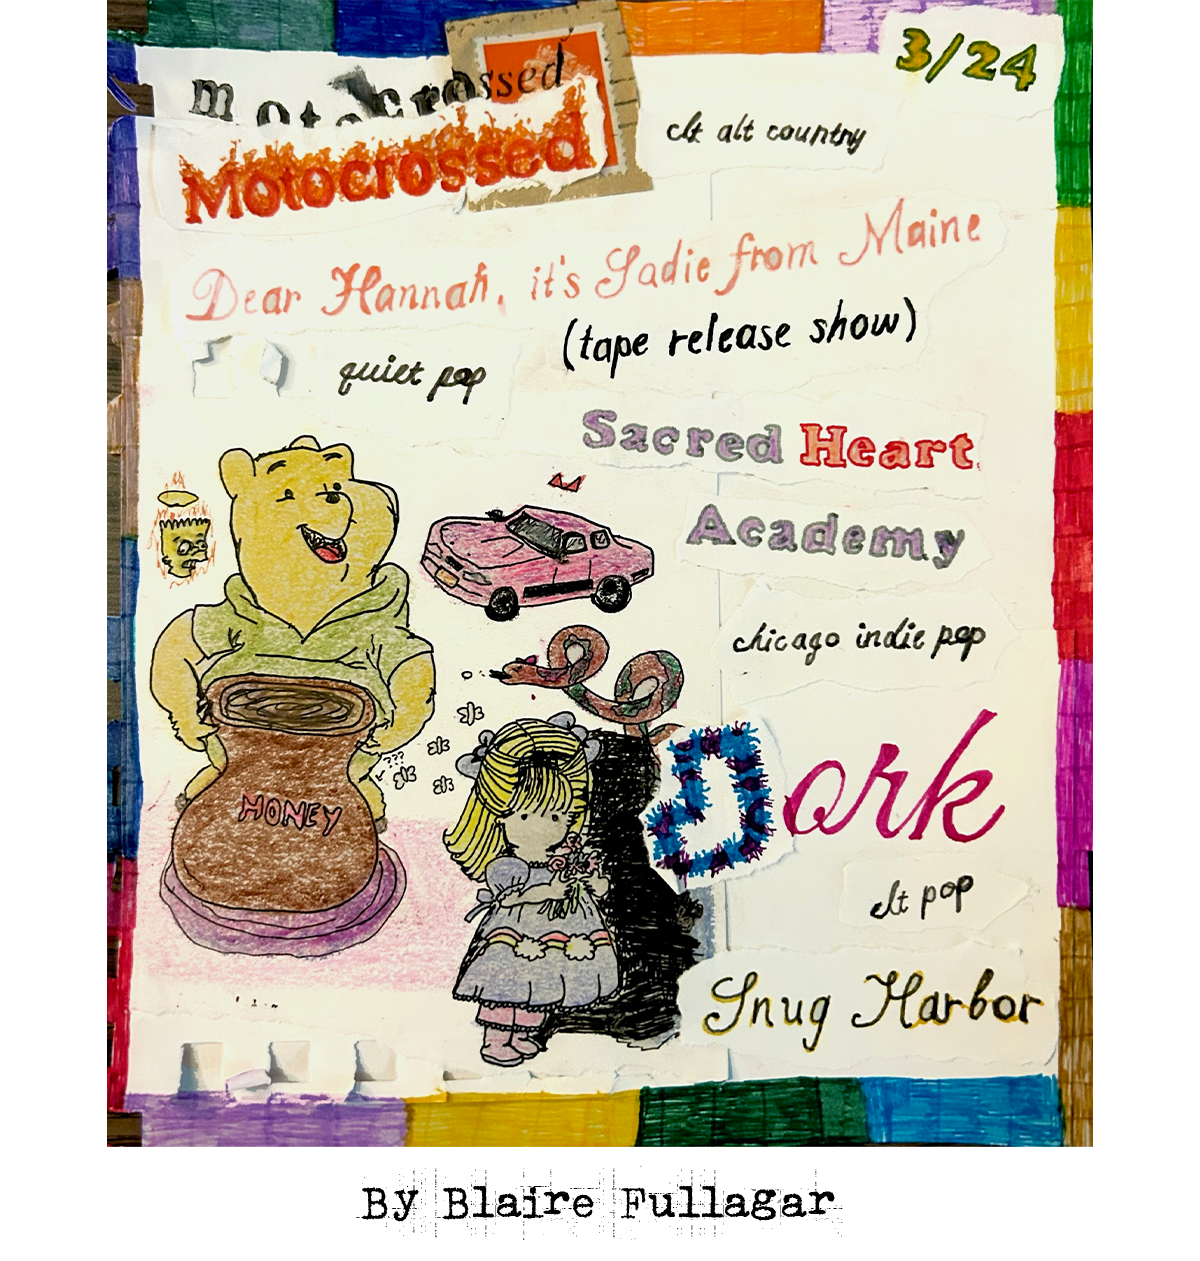 motocrossed
3/24
Motocrossed
clt alt country
Dear Hannah, it's Sadie from Maine
(tape release show)
quiet pop
Sacred Heart
Academy
chicago indie pop
???
HONEY
Dork
clt pop
Snug Harbor
By Blaire Fullagar